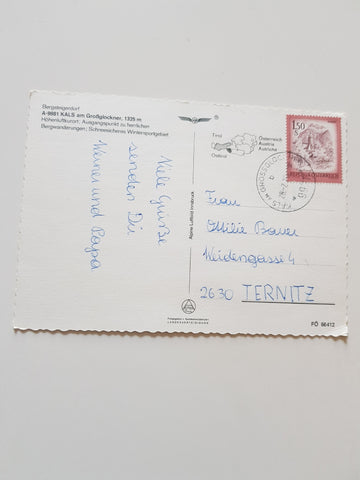 Bergsteigerdorf
A-9981 KALS am Großglockner, 1325 m
Höhenluftkurort; Ausgangspunkt zu herrlichen
Bergwanderungen; Schneesicheres Wintersportgebiet
Viele Grüße
senden Dir
Heiner und Papa
Alpine Luftbild Innsbruck
Tirol
Osttirol
Österreich
Austria
Autriche
1.50
S
REPUBLIK ÖSTERREICH
KALS AM GROSSGLOCKNER
b
Frau
Ottilie Bauer
Weidengasse 4
2630 TERNITZ
LANDESVERTEIDIGUNG
FÖ 86412